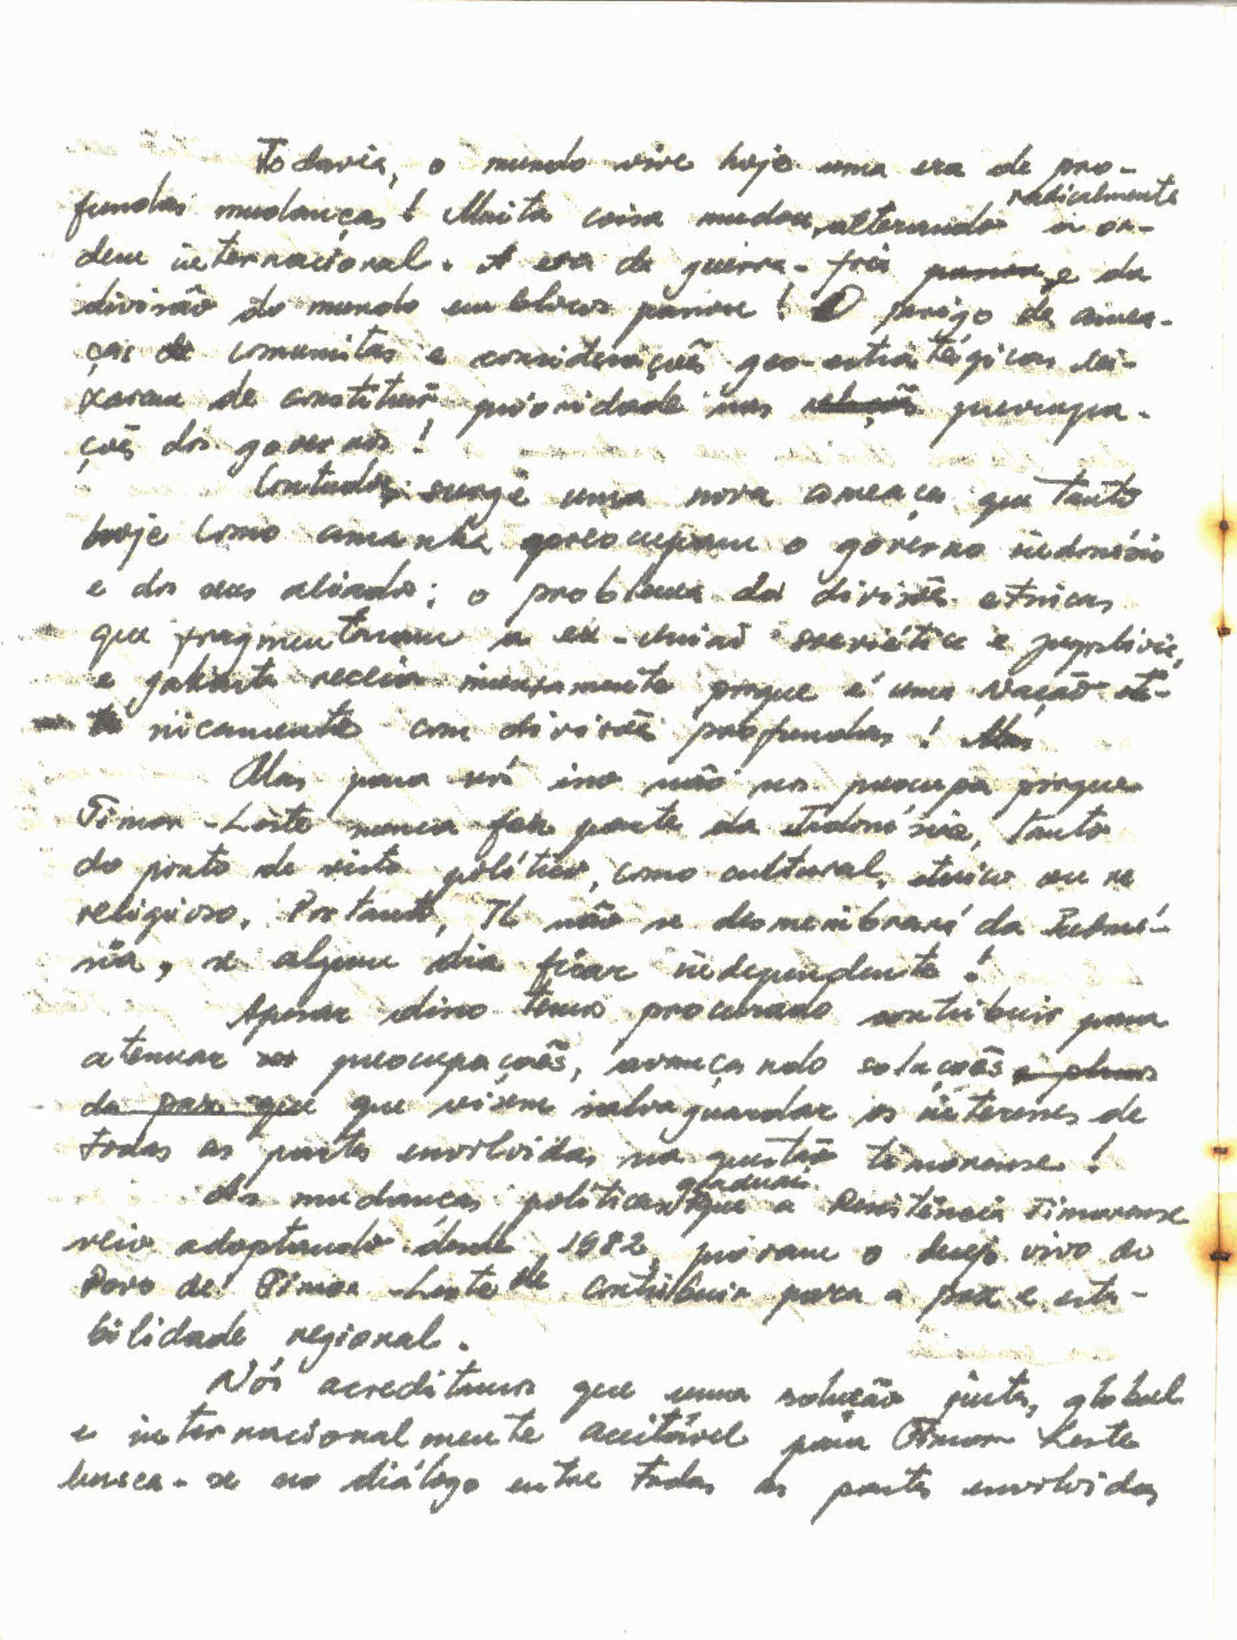 Todavia, o mundo vive hoje uma era de pro-
fundas mudanças! Muita coisa mudou, alterando radicalmente a or-
dem internacional. A era da guerra-fria passou e da
divisão do mundo em blocos passou! O perigo de amea-
ças de comunistas e considerações geo-estratégicas dei-
xaram de constituir prioridade nas relações preocupa-
ções dos governos!
Contudo, surge uma nova ameaça que tanto
hoje como amanhã preocupam o governo indonésio
e dos seus aliados: o problema da divisões etnicas
que fragmentaram a ex-União soviética e Jugoslávia,
e Jakarta receia imensamente porque é uma nação et-
nicamente com divisões profundas! Mas
Mas para nós isso não nos preocupa porque
Timor-Leste nunca fez parte da Indonésia, tanto
do ponto de vista político, como cultural, étnico ou re
religioso. Portanto, TL não se desmembrará da Indoné-
sia, se algum dia ficar independente!
Apesar disso temos procurado contribuir para
atenuar preocupações, avançando soluções e planos
de paz que que visem salvaguardar os interesses de
todas as partes envolvidas na questão timorense!
As mudanças políticas graduais que a Resistência Timorense
veio adoptando desde 1982, provam o desejo vivo do
Povo de Timor-Leste de contribuir para a paz e esta-
bilidade regional.
Nós acreditamos que uma solução justa, global
e internacionalmente aceitável para Timor Leste
busca-se no diálogo entre todas as partes envolvidas